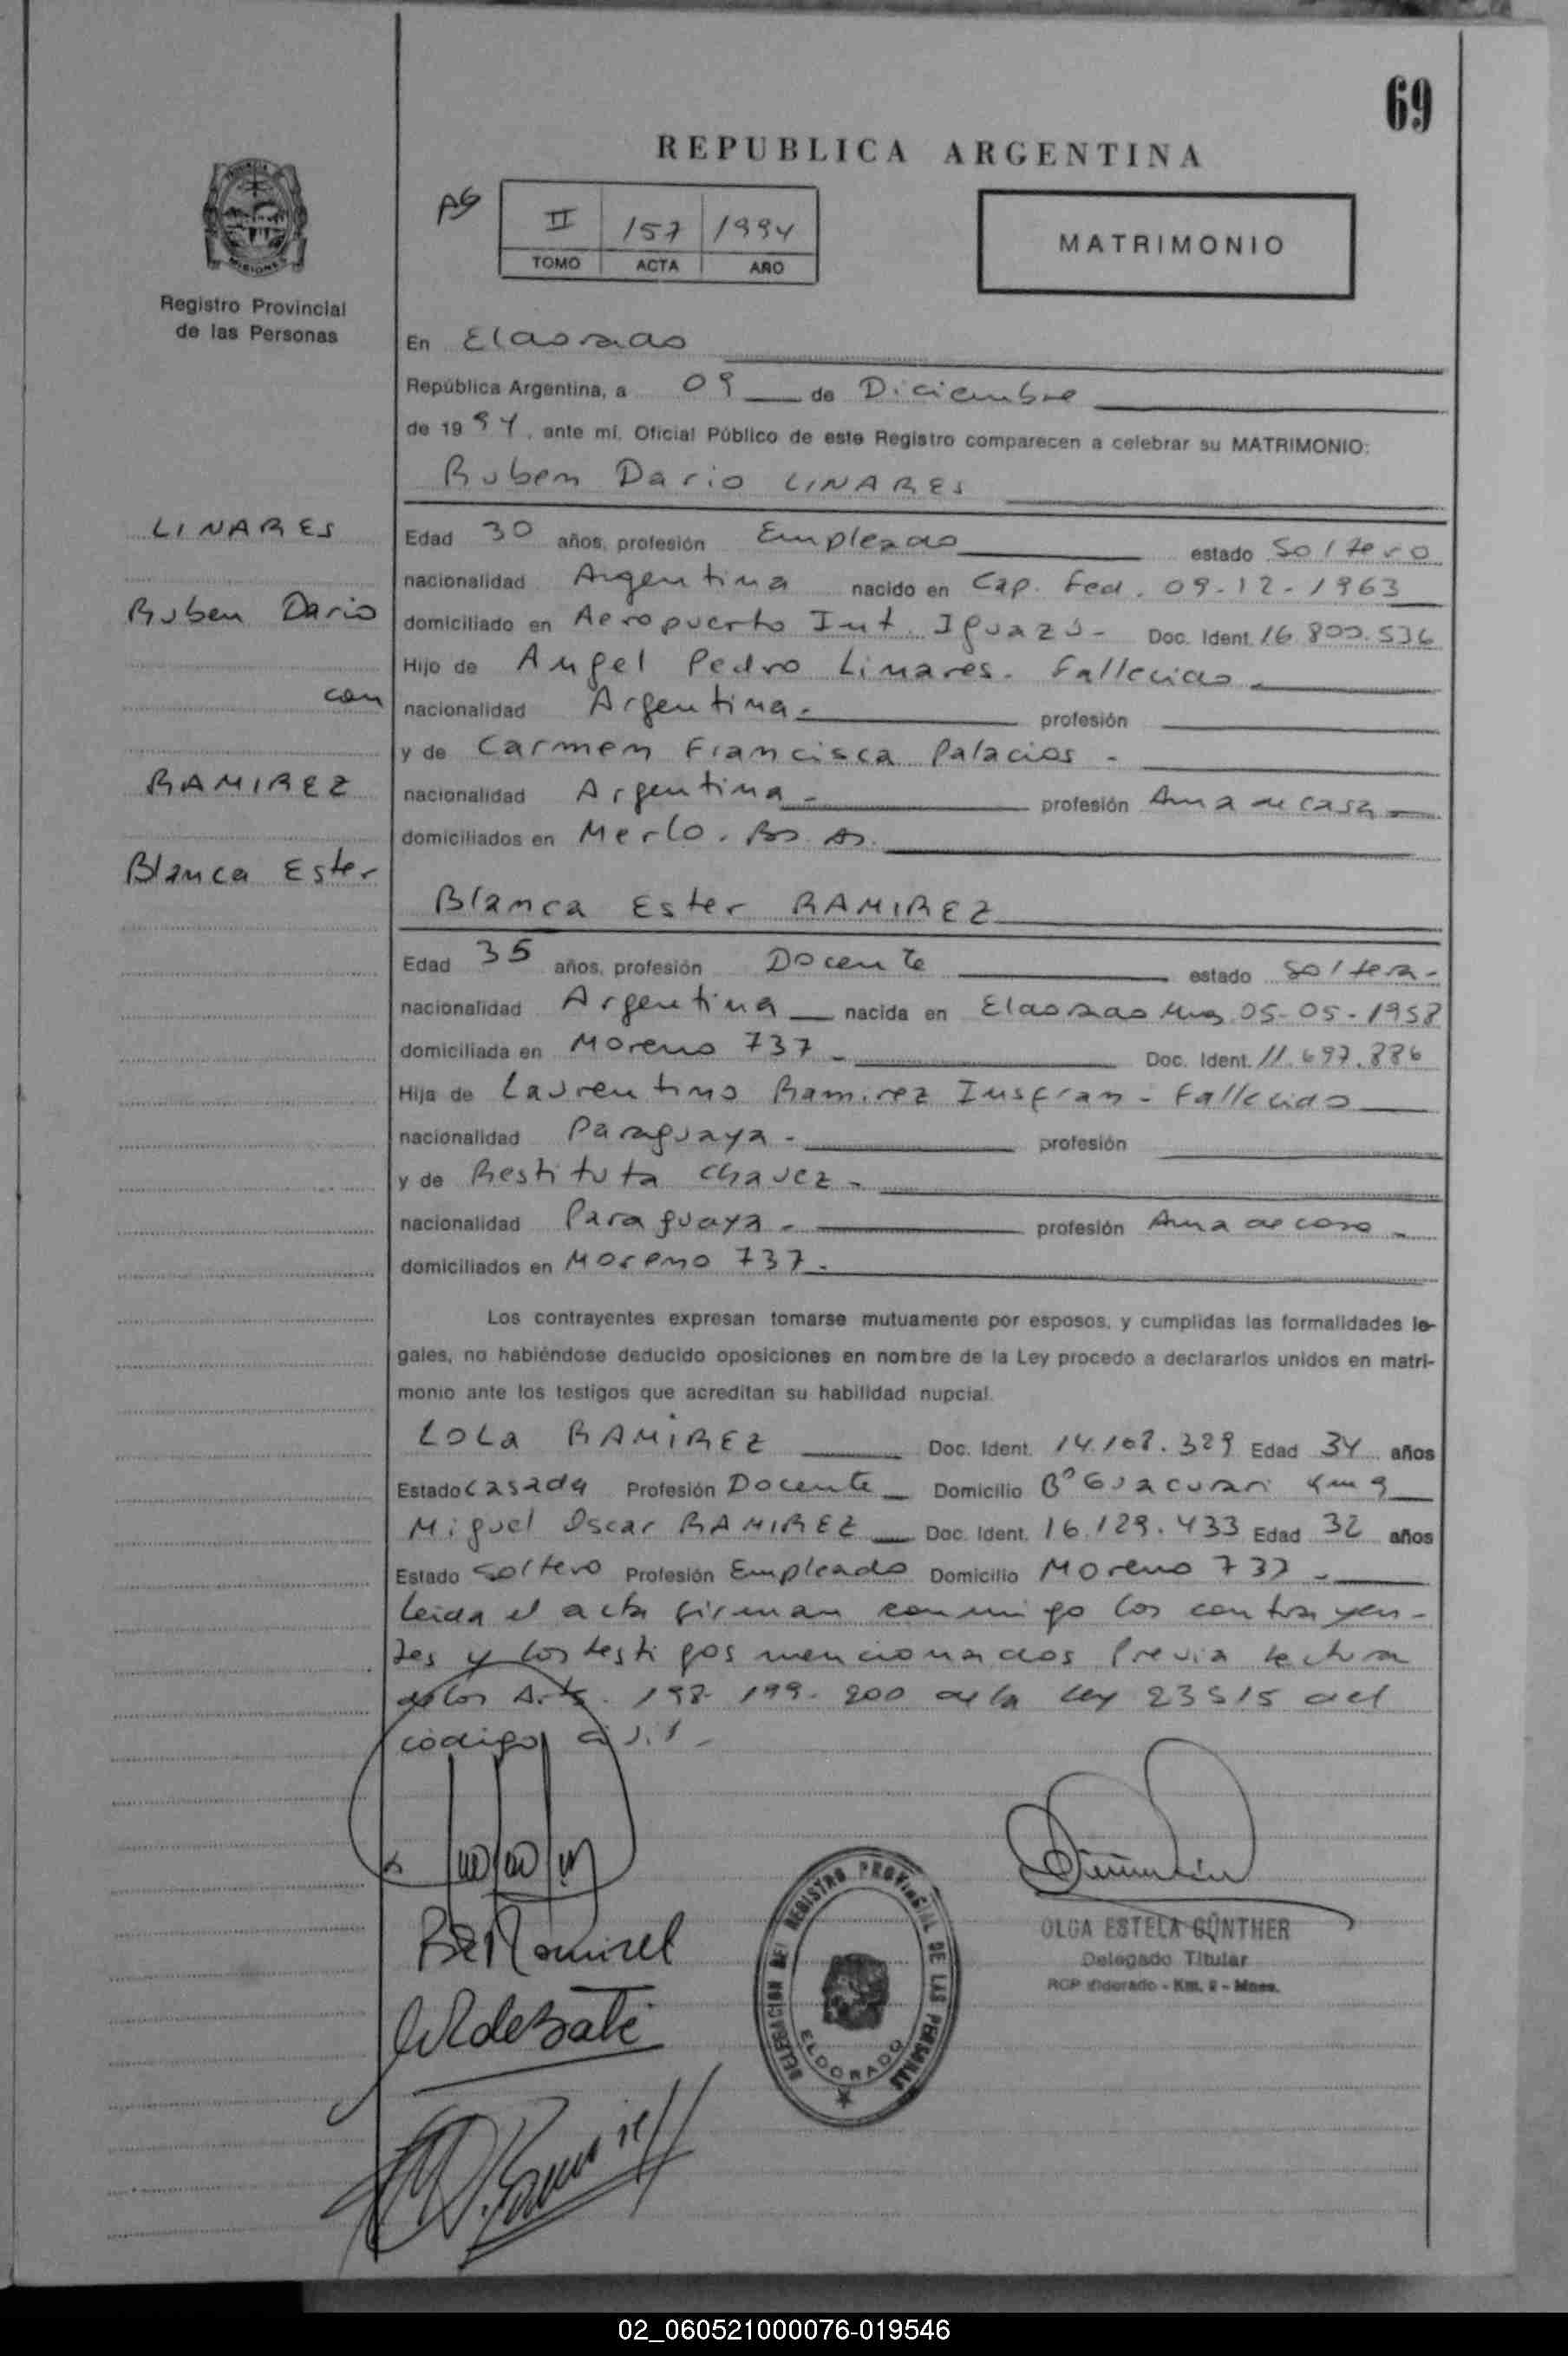 69
REPUBLICA ARGENTINA
II 157 1994
TOMO ACTA AÑO
MATRIMONIO
MISIONES
Registro Provincial
de las Personas
En Eldorado
República Argentina, a 09 de Diciembre
de 1994, ante mí, Oficial Público de este Registro comparecen a celebrar su MATRIMONIO:
Ruben Dario LINARES
LINARES
Ruben Dario
con
RAMIREZ
Blanca Ester
Edad 30 años, profesión Empleado estado Soltero
nacionalidad Argentina nacido en Cap. Fed. 09-12-1963
domiciliado en Aeropuerto Int. Iguazú - Doc. Ident. 16.800.536
Hijo de Angel Pedro Linares. Fallecido -
nacionalidad Argentina - profesión
y de Carmen Francisca Palacios -
nacionalidad Argentina - profesión Ama de casa -
domiciliados en Merlo. Bs. As.
Blanca Ester RAMIREZ
Edad 35 años, profesión Docente estado soltera -
nacionalidad Argentina nacida en Eldorado Mnes 05-05-1958
domiciliada en Moreno 737 - Doc. Ident. 11.697.886
Hija de Laurentino Ramirez Insfran - Fallecido
nacionalidad Paraguaya - profesión
y de Restituta Chavez -
nacionalidad Paraguaya - profesión Ama de casa -
domiciliados en Moreno 737.
Los contrayentes expresan tomarse mutuamente por esposos, y cumplidas las formalidades le-
gales, no habiéndose deducido oposiciones en nombre de la Ley procedo a declararlos unidos en matri-
monio ante los testigos que acreditan su habilidad nupcial.
LOLA RAMIREZ Doc. Ident. 14.168.329 Edad 34 años
Estado casada Profesión Docente Domicilio Bº Guacurari Km 9
Miguel Oscar RAMIREZ Doc. Ident. 16.129.433 Edad 32 años
Estado soltero Profesión Empleado Domicilio Moreno 737 -
Leida el acta firman conmigo los contrayen-
tes y los testigos mencionados Previa lectura
de los Arts. 198-199-200 de la Ley 23515 del
codigo civil -
B E Ramirez
DELEGACION DEL REGISTRO PROVINCIAL DE LAS PERSONAS
ELDORADO
OLGA ESTELA GÜNTHER
Delegado Titular
RCP Eldorado - Km. 9 - Mnes.
02_060521000076-019546